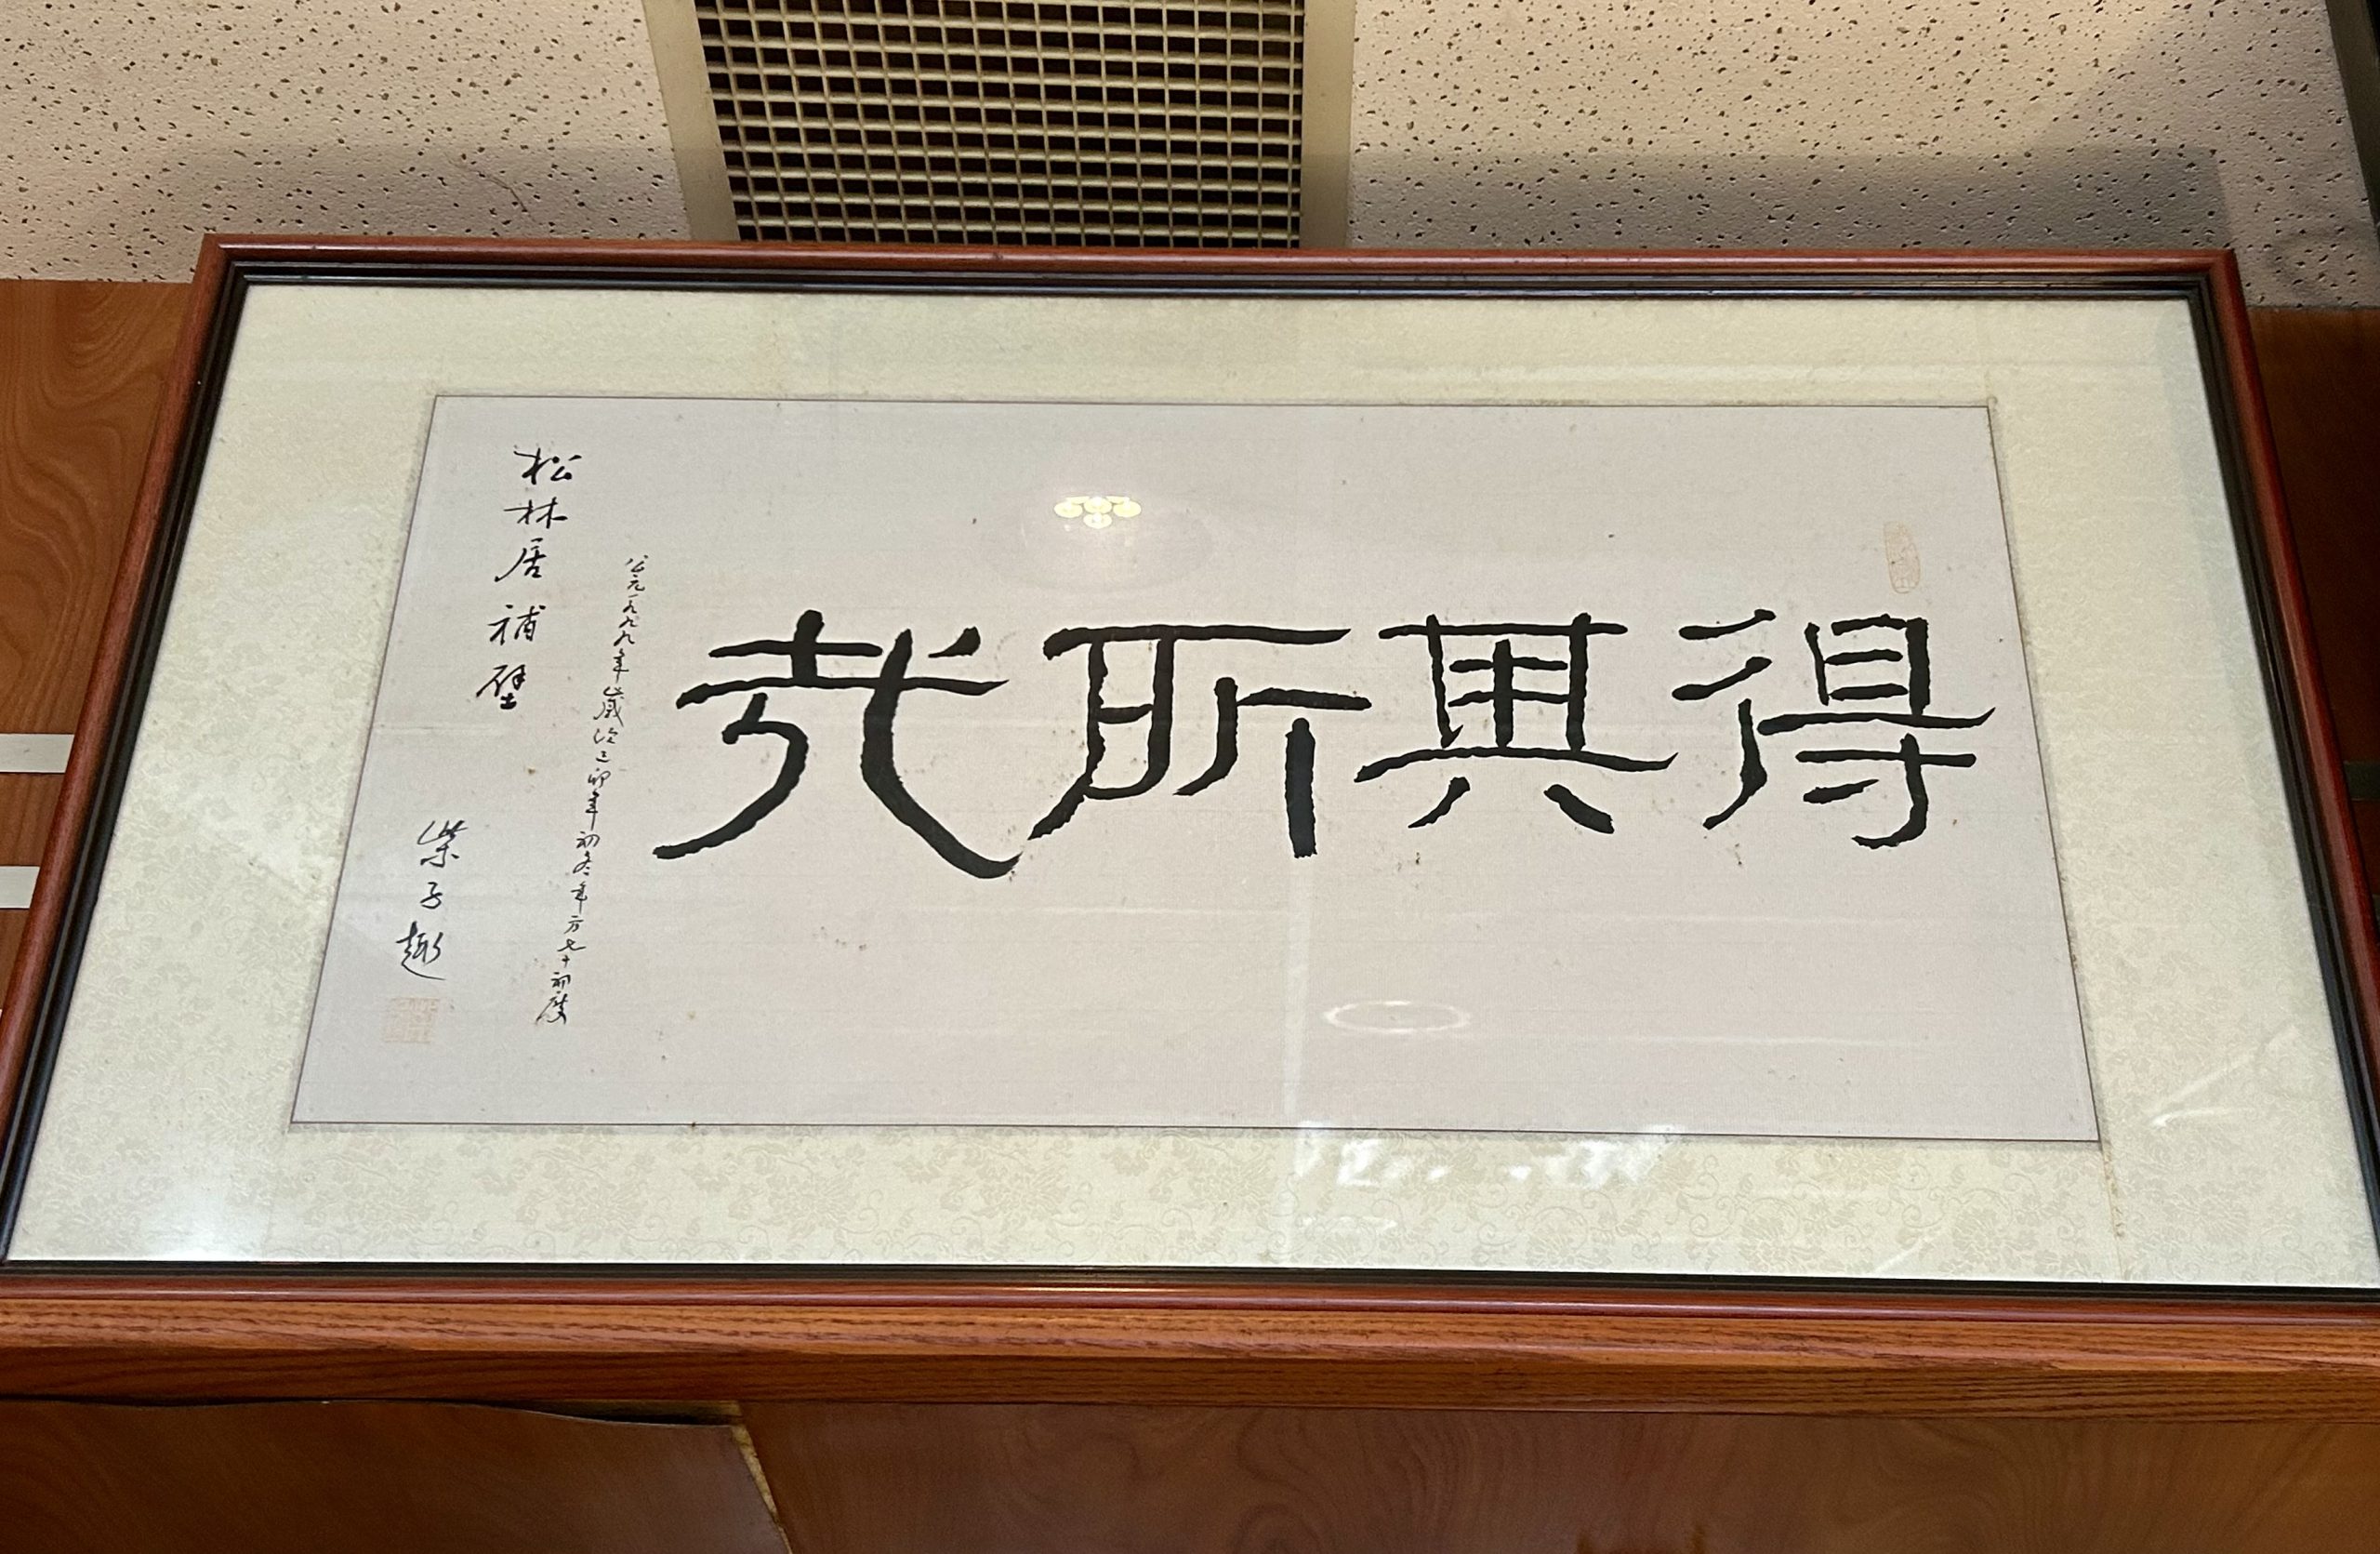 得其所哉
公元一九九九年歲次己卯年初冬年方七十初度
松林居補壁
柴子趣